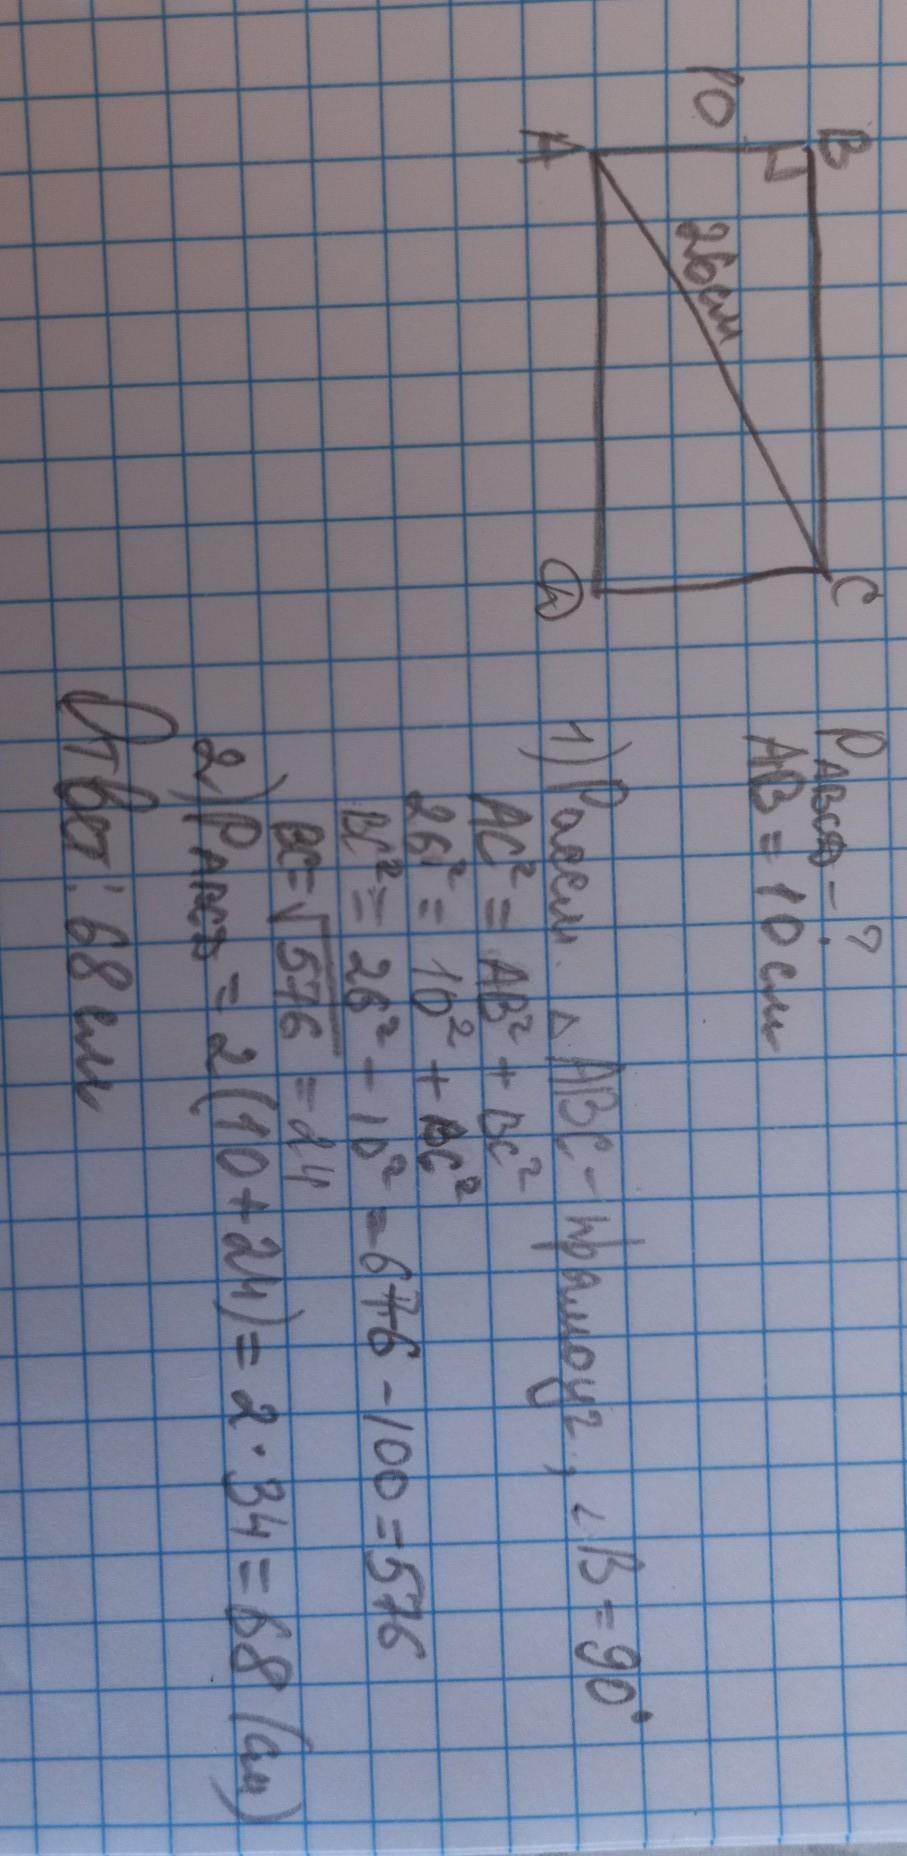 B
C
10
26см
A
D
PABCD - ?
AB = 10 см
1) Рассм. △ ABC - прямоуг., ∠B = 90°
AC² = AB² + BC²
26² = 10² + BC²
BC² = 26² - 10² = 676 - 100 = 576
BC = √576 = 24
2) PABCD = 2 (10 + 24) = 2 · 34 = 68 (см)
Ответ: 68 см